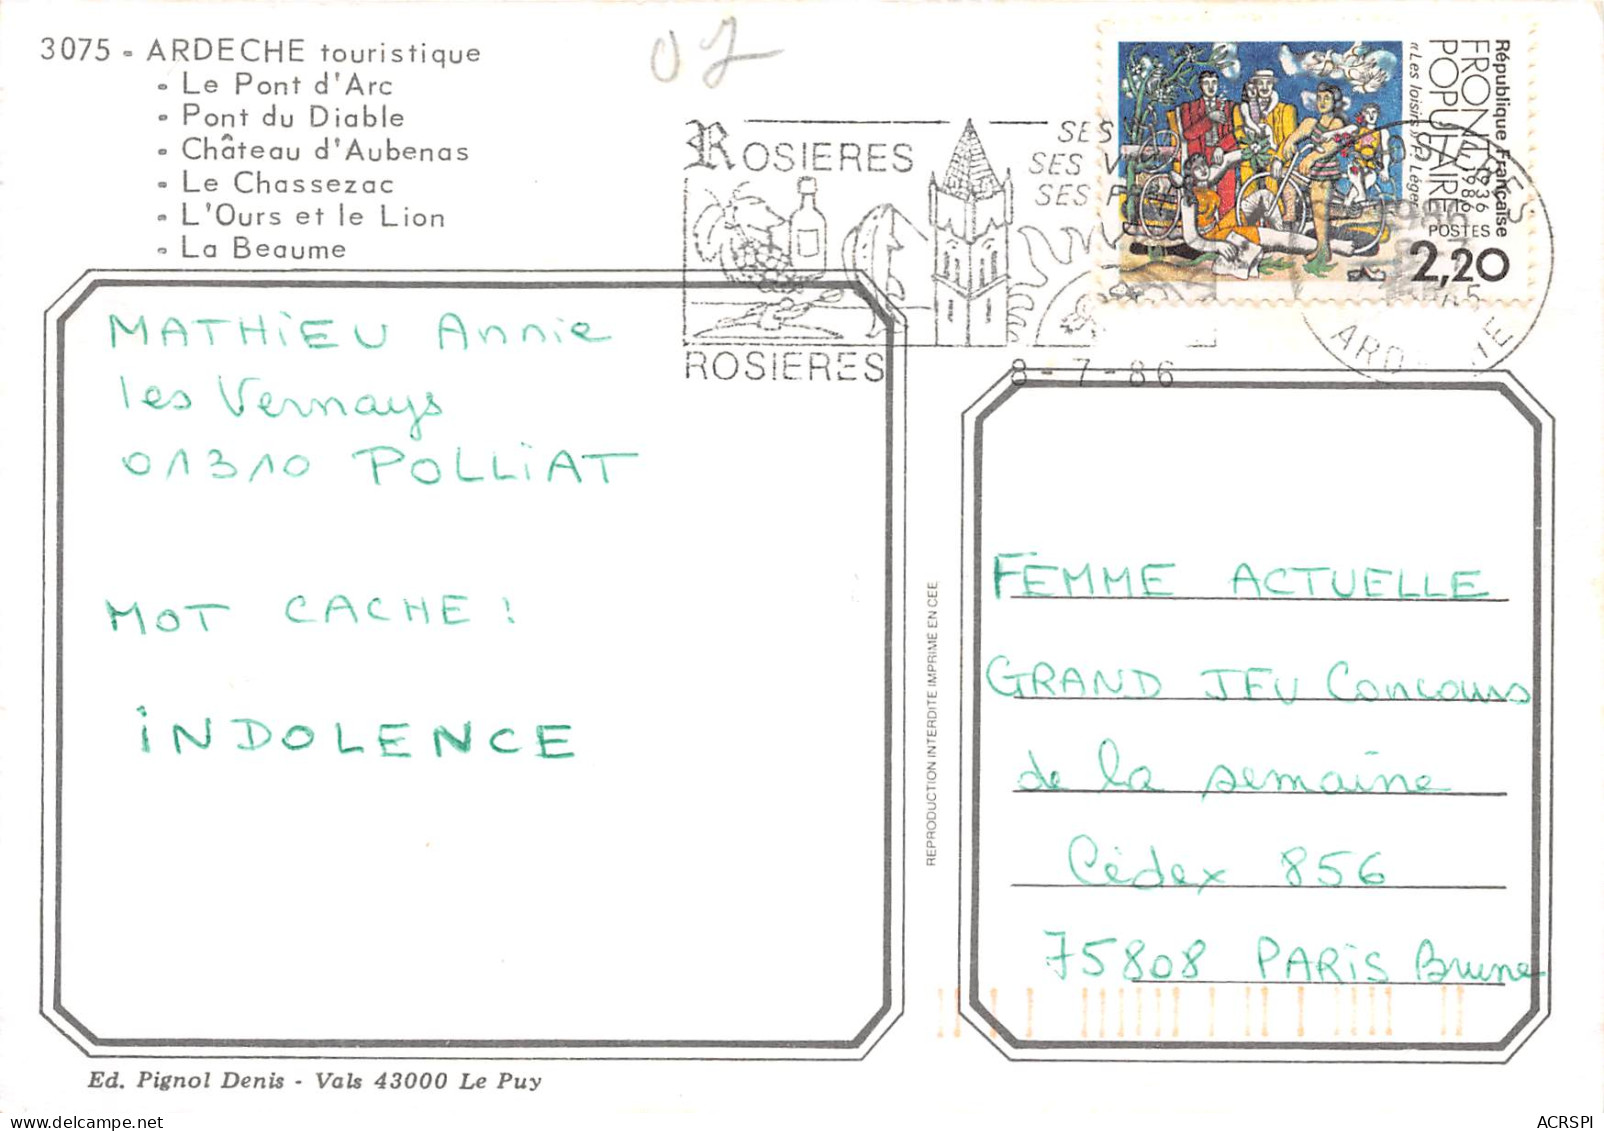 3075 - ARDECHE touristique
- Le Pont d'Arc
- Pont du Diable
- Château d'Aubenas
- Le Chassezac
- L'Ours et le Lion
- La Beaume
07
ROSIERES
SES
SES
SES
ROSIERES
8-7-86
République Française
FRONT POPULAIRE
1936
1986
« Les loisirs » F. Léger
POSTES
2,20
MATHIEU Annie
les Vernays
01310 POLLIAT
MOT CACHE :
INDOLENCE
REPRODUCTION INTERDITE IMPRIME EN CEE
FEMME ACTUELLE
GRAND JEU Concours
de la semaine
Cédex 856
75808 PARIS Brune
Ed. Pignol Denis - Vals 43000 Le Puy
ACRSPI